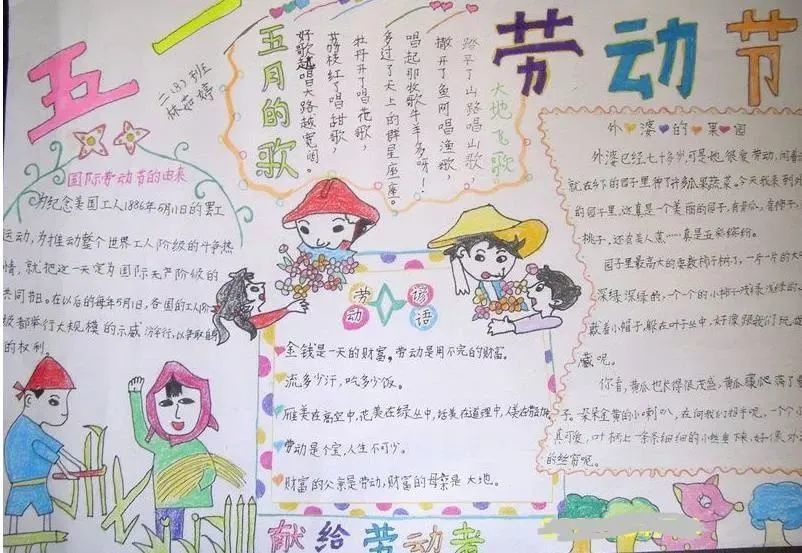 五一
劳动节
二.(3)班
林茹婷
国际劳动节的由来
为纪念美国工人1886年5月1日的罢工
运动,为推动整个世界工人阶级的斗争热
情,就把这一天定为国际无产阶级的
共同节日。在以后的每年5月1日,各国的工人阶
级都举行大规模的示威游行,以争取自
的权利。
五月的歌
大地飞歌
踏平了山路唱山歌,
撒开了鱼网唱渔歌,
唱起那牧歌牛羊多呀!
多过了天上的群星座座。
牡丹开了唱花歌,
荔枝红了唱甜歌,
好歌越唱大路越宽阔。
劳动谚语
金钱是一天的财富。劳动是用不完的财富。
流多少汗,吃多少饭。
雁美在高空中,花美在绿丛中,话美在道理中,人美在
劳动是个宝,人生不可少。
财富的父亲是劳动,财富的母亲是大地。
外婆的果园
外婆已经七十多岁,可是她很爱劳动,
就在乡下的园子里种了许多瓜果蔬菜。今天我来到
的园子里,这真是一个美丽的园子,有黄瓜,有柿子,
桃子,还有美人蕉……真是五彩缤纷。
园子里最高大的要数柿子树了,一片一片的大
深绿深绿的,一个个的小柿子浅绿浅绿的,
戴着小帽子,躲在叶子丛中,好像跟我们玩
藏呢。
你看,黄瓜也长得很茂盛,黄瓜藤爬满了
子。朵朵金黄的小喇叭,在向我们招手呢,一个个
真可爱,叶柄上一条条细细的小丝垂下来,好像
的丝窗呢。
献给劳动者